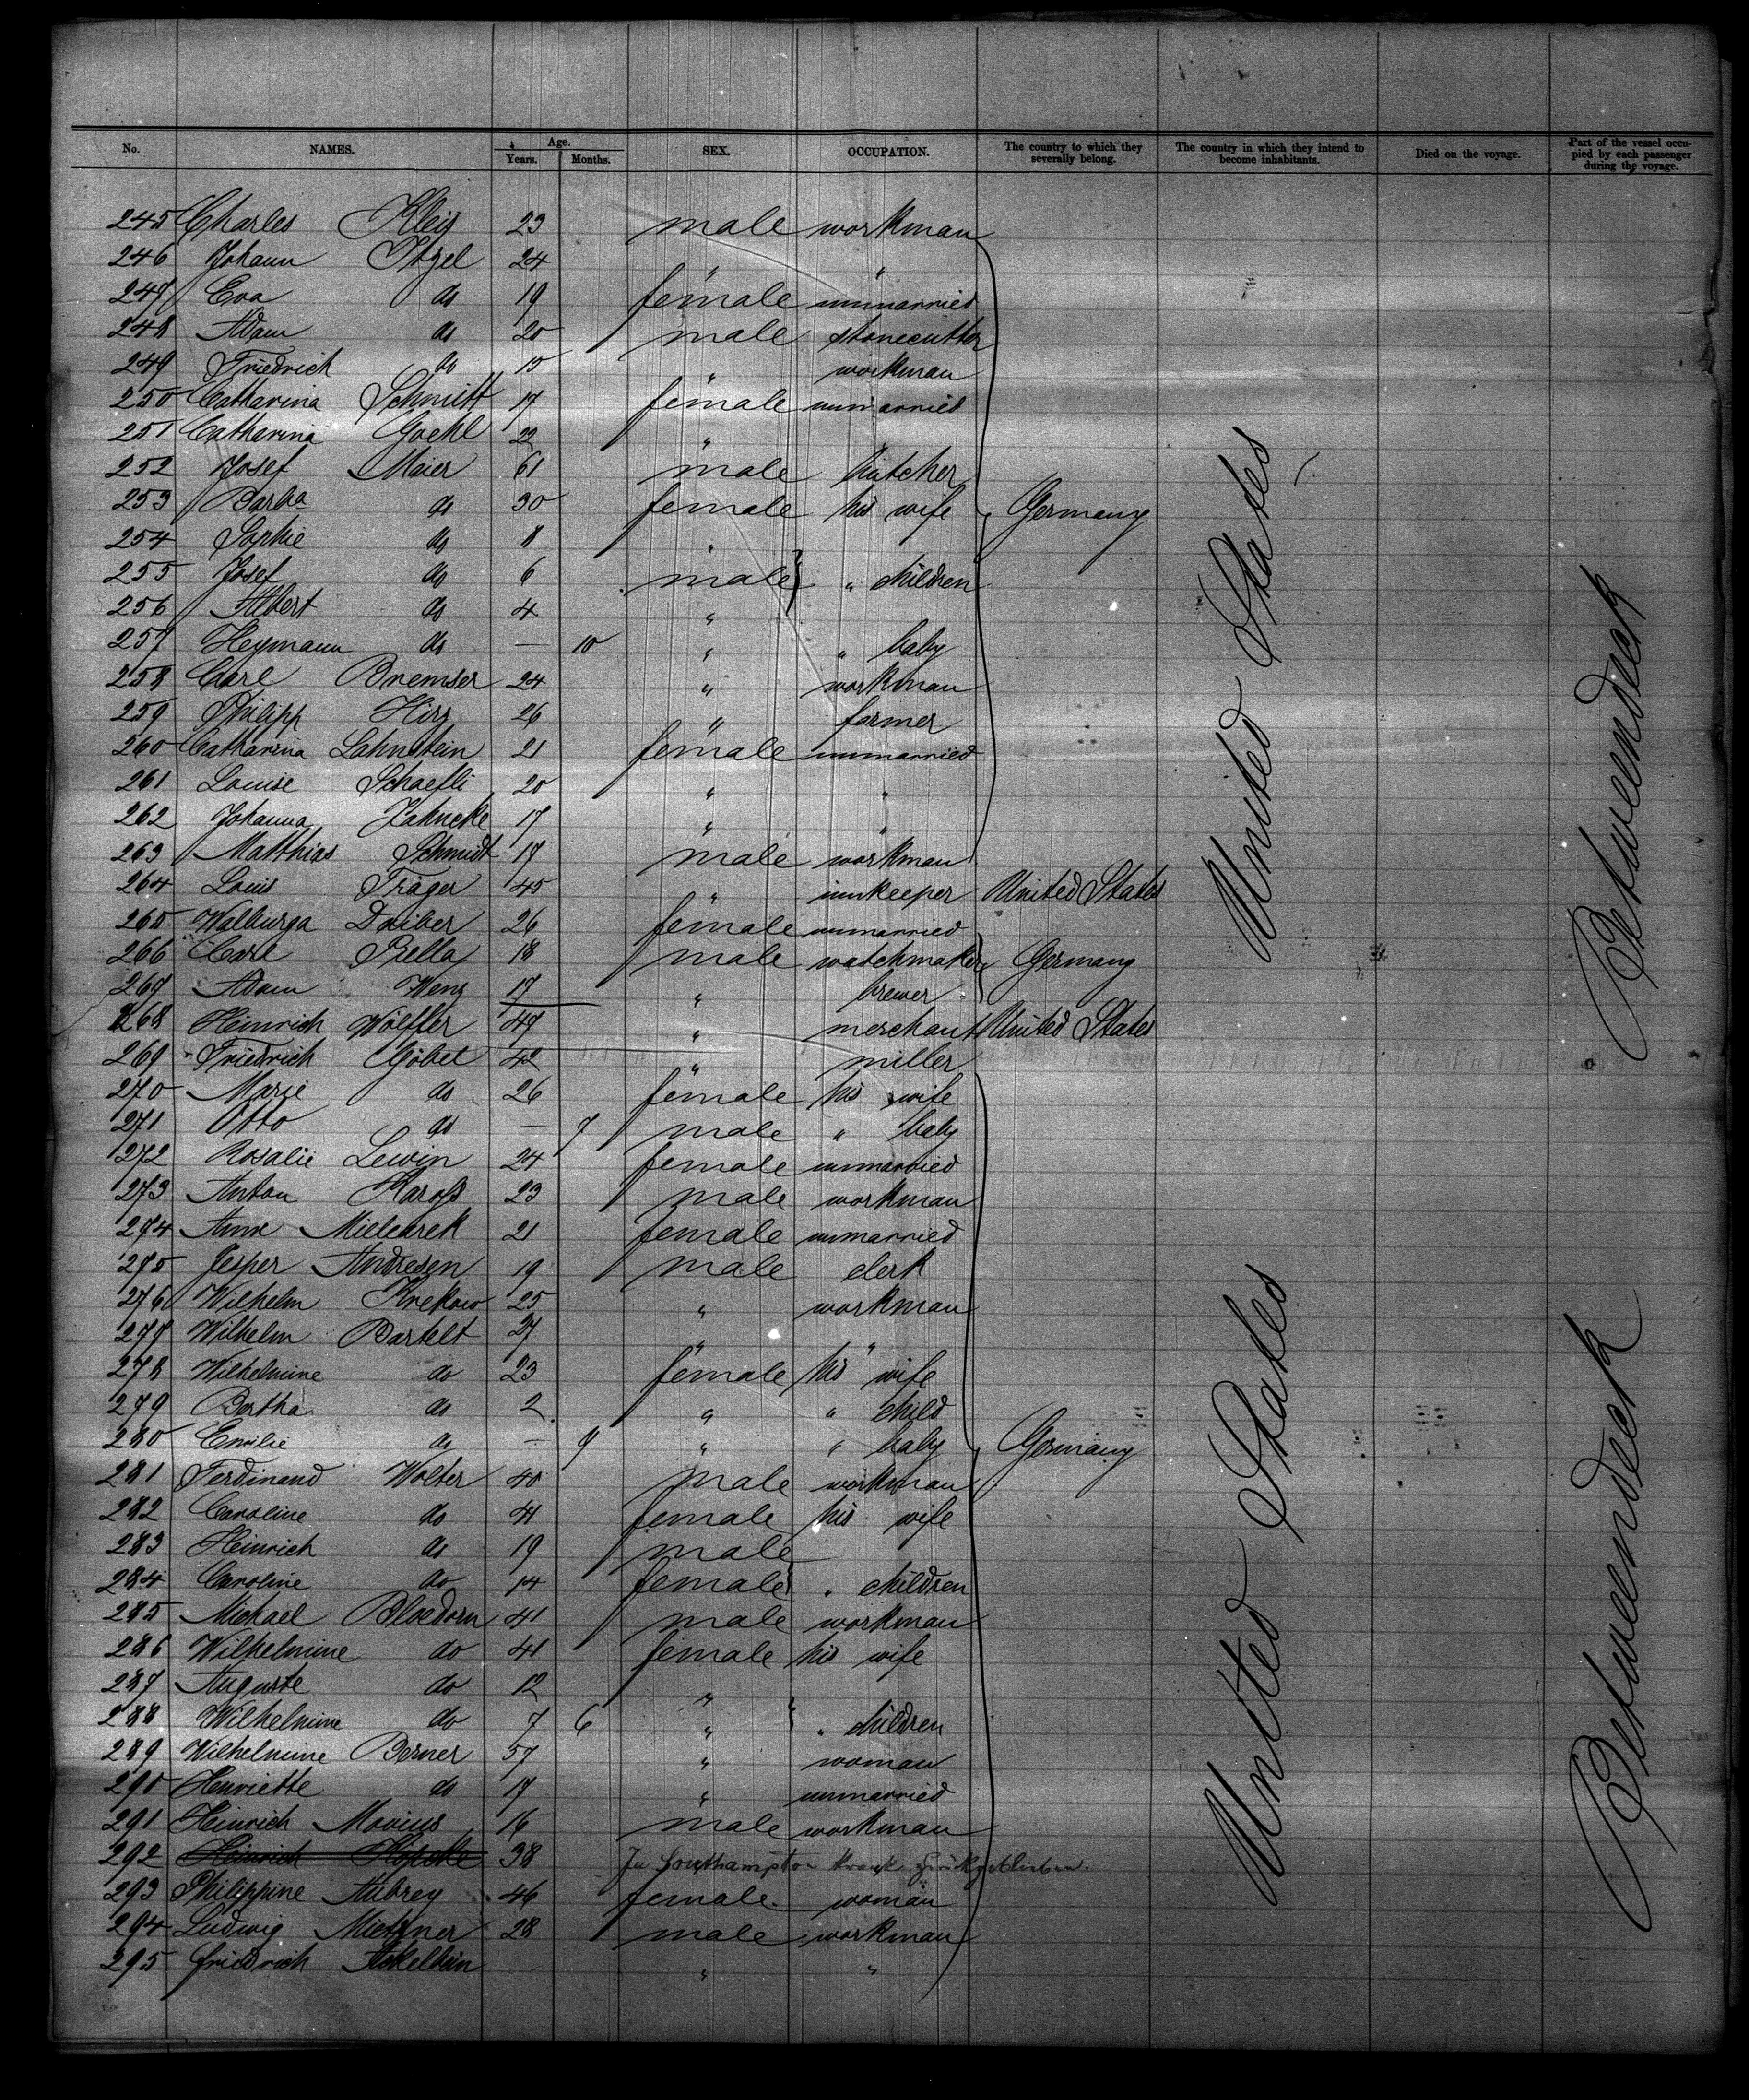 No. NAMES. Age. Years. Months. SEX. OCCUPATION. The country to which they severally belong. The country in which they intend to become inhabitants. Died on the voyage. Part of the vessel occupied by each passenger during the voyage.
245 Charles 23 male workman
246 Johann Itzel 24 " "
247 Eva do 19 female unmarried
248 Adam do 20 male stonecutter
249 Friedrich do 15 " workman
250 Catharina Schmitt 17 female unmarried
251 Catharina Goehl 22 "
252 Josef Maier 61 male butcher
253 Barba do 30 female his wife Germany
254 Sophie do 8 "
255 Josef do 6 male " children
256 Albert do 4 "
257 Heymann do — 10 " " baby
258 Carl Bremser 24 " workman
259 Philipp Hirz 26 " farmer
260 Catharina Lahnstein 21 female unmarried
261 Louise Schaefli 20 " "
262 Johanna Jahncke 17 " "
263 Matthias Schmidt 17 male workman
264 Louis Träger 45 " innkeeper United States
265 Walburga Daiber 26 female unmarried
266 Carl Bella 18 male watchmaker Germany
267 Adam Wenz 17 " brewer
268 Heinrich Wölffer 47 " merchant United States
269 Friedrich Göbel 42 " miller
270 Marie do 26 female his wife
271 Otto do — 7 male " baby
272 Rosalie Lewin 24 female unmarried
273 Anton Karoß 23 male workman
274 Anna Mielcarek 21 female unmarried
275 Jesper Andresen 19 male clerk
276 Wilhelm Krekow 25 " workman
277 Wilhelm Bartelt 27 " "
278 Wilhelmine do 23 female his wife
279 Bertha do 2 " " child
280 Emilie do — 9 " " baby Germany
281 Ferdinand Wolter 40 male workman
282 Caroline do 41 female his wife
283 Heinrich do 19 male
284 Caroline do 14 female " children
285 Michael Bloedorn 41 male workman
286 Wilhelmine do 41 female his wife
287 Auguste do 12 "
288 Wilhelmine do 7 6 " " children
289 Wilhelmine Berner 57 " woman
290 Henriette do 17 " unmarried
291 Heinrich Movius 16 male workman
292 Heinrich Köpcke 38 In Southampton krank zurückgeblieben.
293 Philippine Aubrey 46 female woman
294 Ludwig Mietzner 28 male workman
295 Friedrich " "
United States
United States
Betweendeck
Betweendeck